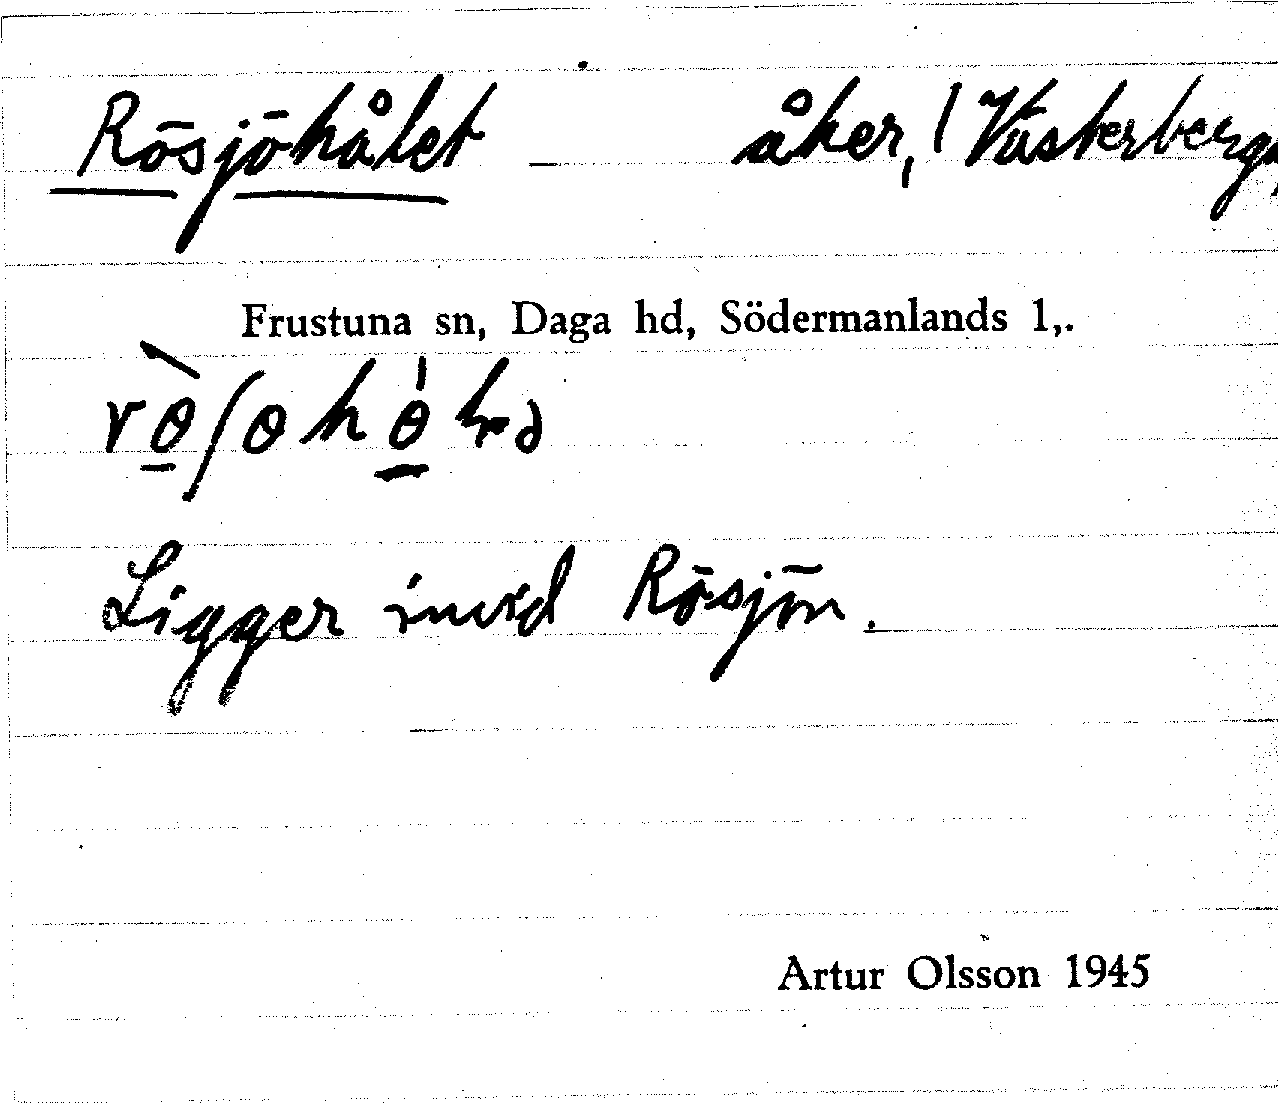 Rösjöhålet åker, / Västerberga,
Frustuna sn, Daga hd, Södermanlands l,.
Ligger invid Rösjön.
Artur Olsson 1945